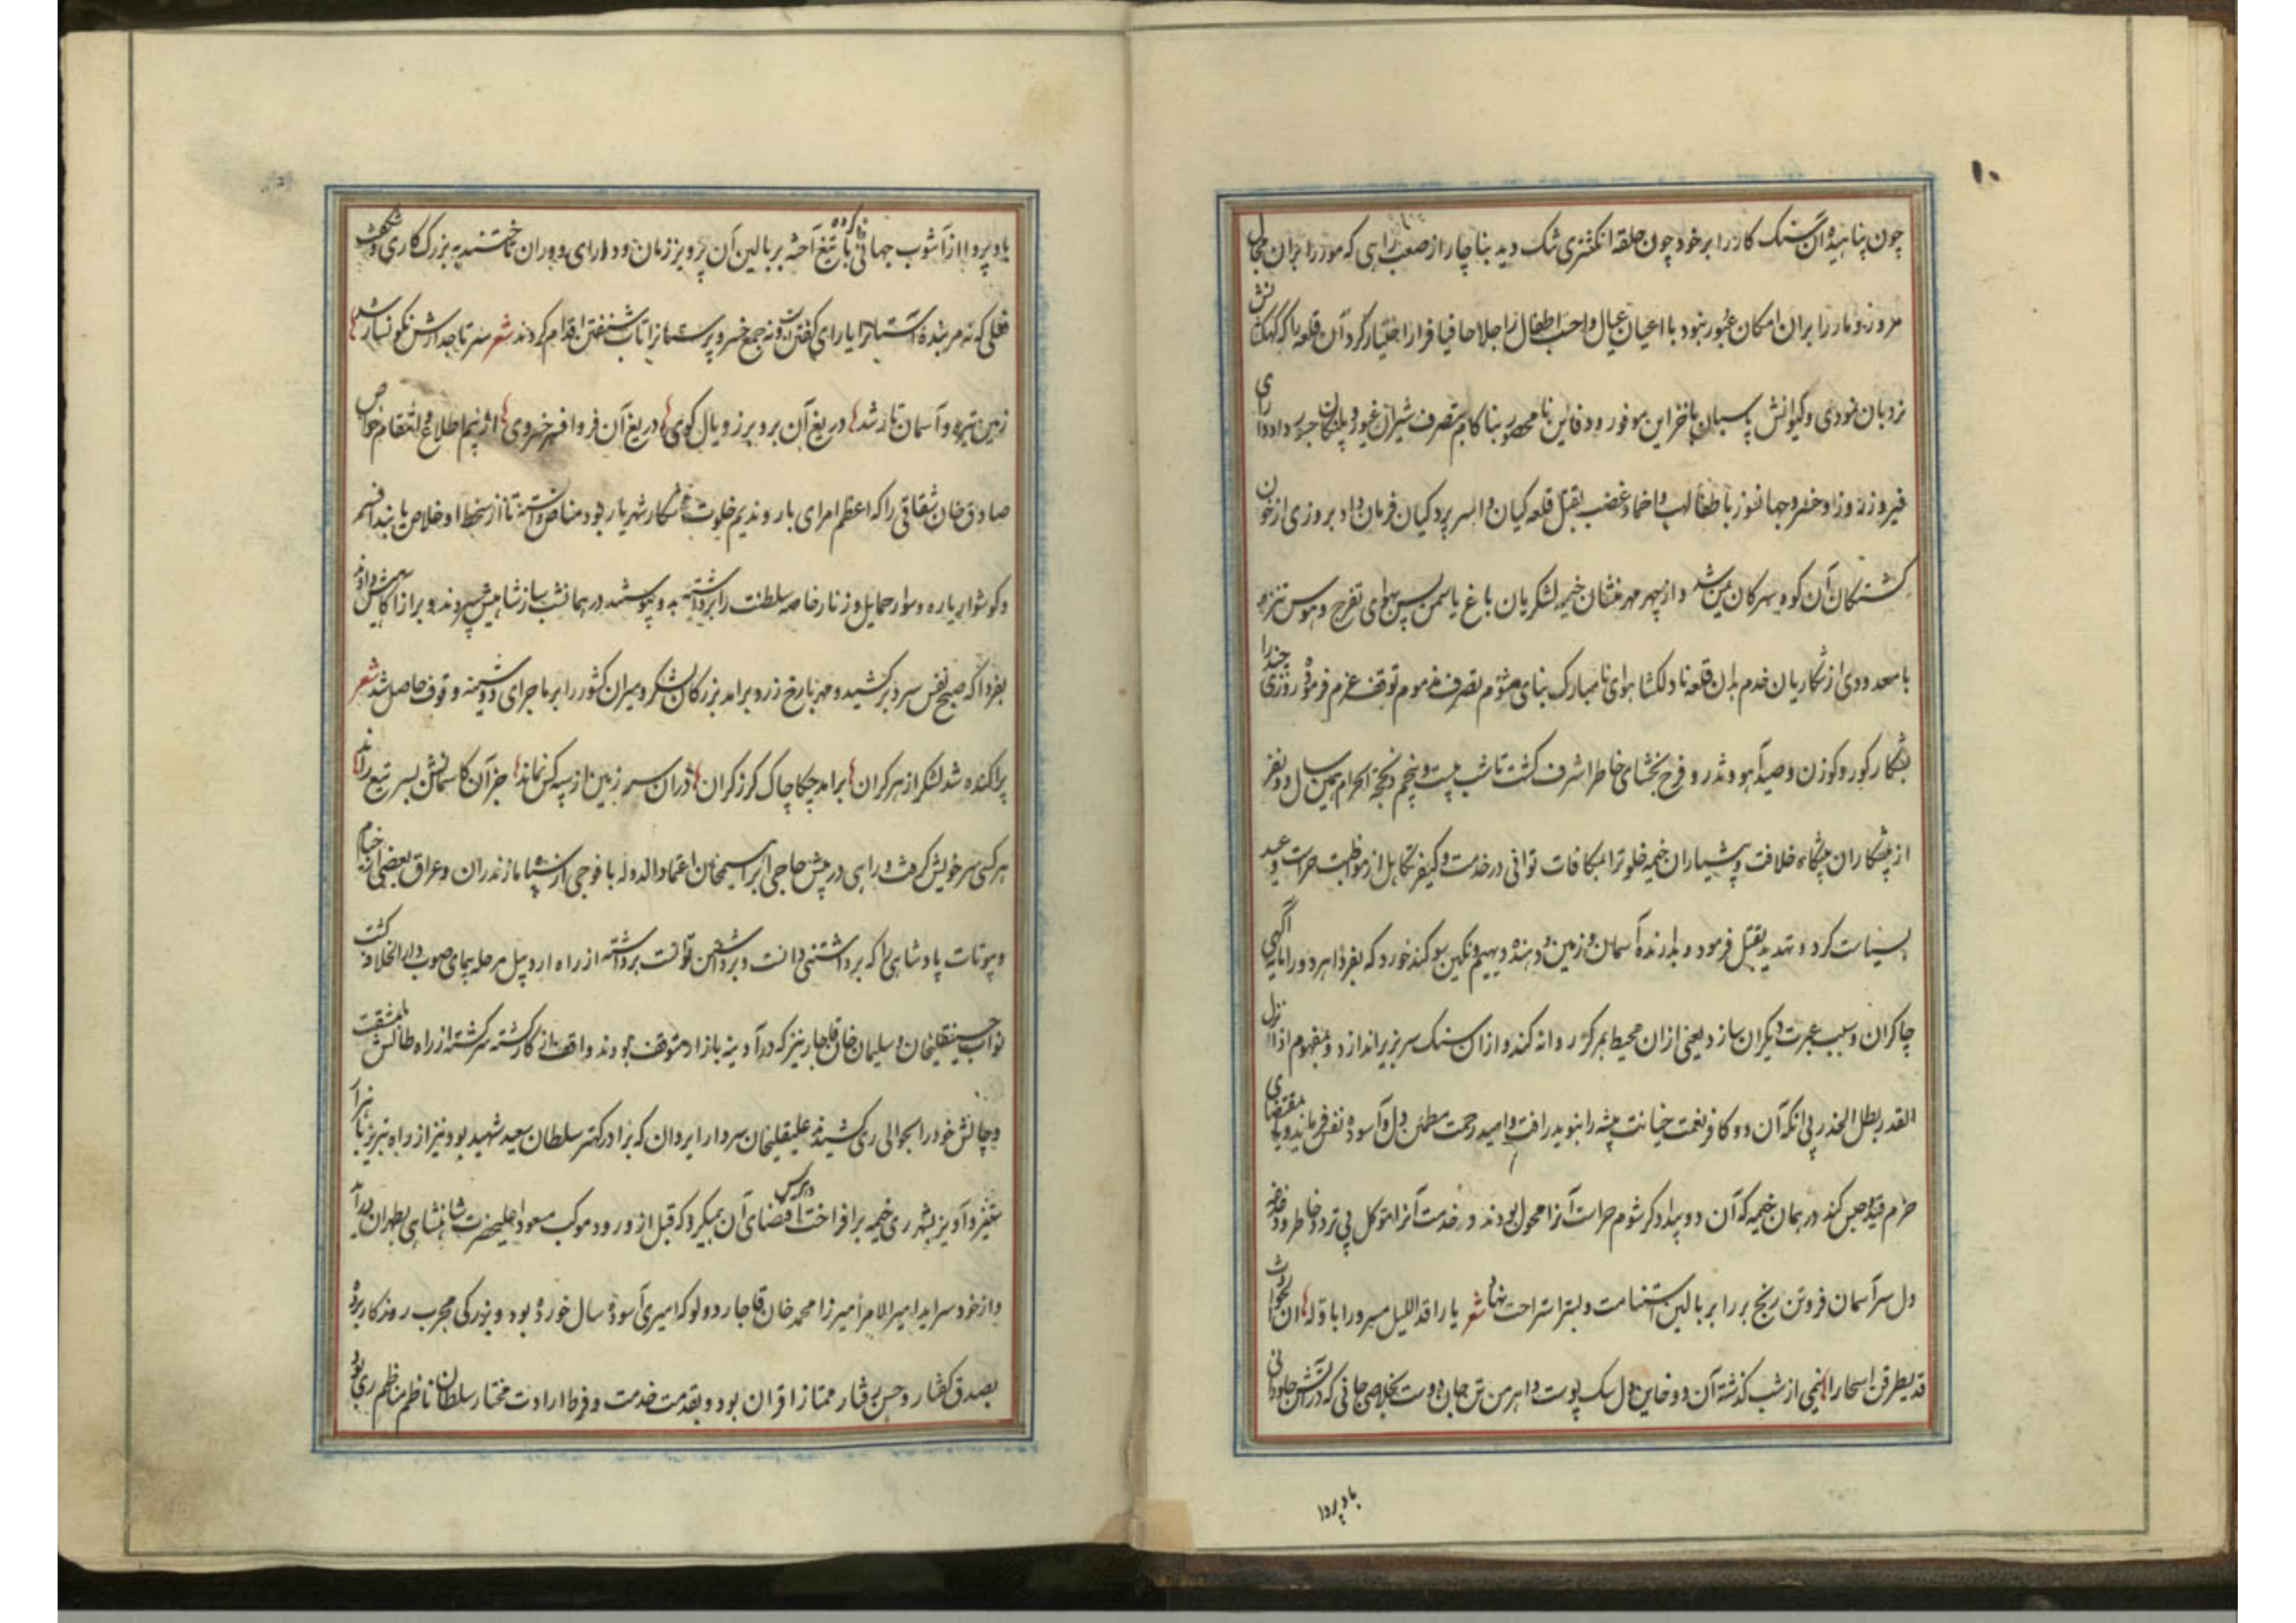 ۱۰
چون پناهیده آن سنگ کار را بر خود چون حلقه انکشتری تنک دید بناچار از صعب راهی که مور را بران مجال
مرور و مار را بران امکان عبور نبود با اعیان عیال و احب اطفال اجلا حافیا فرار اختیار کرد آن قلعه که
نردبان نمودی و کیوانش پاسبان با خزاین موفور و دفاین نامحصور بناکام بتصرف شیران غیور و پلنکان جسور داد
فیروز روز او خفر و جانفوز باطفا لهب و اخماد غضب بقتل قلعه کیان و اسر پردکیان فرمان داد بروزی از خون
کشتکان آن کوه و سهر کان شد و از چهر مهرمنشان خیمه لشکریان باغ یاسمن پس بهوای تفرج و هوس تنزه
با معدودی از شکاریان خدم بدان قلعه نادلکشا هوای نامبارک بنای مشؤم تصرف مذموم توقف عزم فرموده روزی چند را
بشکار کور و کوزن و صید آهو و تذرو فرح بخشای خاطر اشرف کشت تا شب بیست و پنجم ذیحجة الحرام همین سال دو نفر
از پیشکاران پیشکاه خلافت و پیشیاران خیمه خلوت را بمکافات توانی در خدمت و کیفر تکاهل از مواظبت حراست وعید
سیاست کرد و تهدید بقتل فرمود و بدارنده آسمان و زمین و دهنده دیهیم و نکین سوکند خورد که بفردا هر دو را مایه آکهی
چاکران و سبب عبرت دیکران سازد یعنی ازان محیط بمرکز روانه کند و ازان سنک سر بزیر اندازد و بمفهوم اذا نزل
القدر بطل الحذر بی انکه آن دو کافر نعمت خیانت پیشه را بنوید رافت و امید رحمت مطمئن دل و آسوده نفس فرماید و یا بمقتضای
حزم قید و حبس کند در همان خیمه که آن دو بیدادکر شوم حراست آنرا محول بودند و خدمت آنرا متوکل بی تردد خاطر و دغدغه
دل سر آسمان فر و تن رنج بر را بر بالین استنامت و بستر استراحت نهاد شعر یا راقد اللیل مسرورا باوله ان الحوادث
قد یطرقن اسحارا نیمی از شب کذشته آن دو خاین دل سک پوست و اهرمن تن جان دوست بخلاص جانی که در آتش جاودانی
باد پروا
باد پروا از آشوب جهانی کرده با تیغ آخته بر بالین آن پرویز زمان و دارای دوران تاختند به بزرک کاری و شکفت
فعلی که نه مر بنده آستانرا یارای کفتن و نه جمع خسروپرستانرا تاب شنفتن اقدام کردند شعر سر تاجدارش نکونسار شد
زمین تیره و آسمان تار شد دریغ آن بر و برز و یال کوی دریغ آن فر و افسر خسروی از بیم اطلاع و انتقام خواص
صادق خان شقاقی را که اعظم امرای بار و ندیم خلوت شکار شهریار بود مناص دانسته تا از سخط او خلاص یابند افسر
و کوشوار یاره و سوار حمایل و زنار خاصه سلطنت را برداشته بدو پیوستند در همان شب بساز شاهیش سپردند و براز آکاهیش دادند
بفردا که صبح نفس سرد برکشید و مهر با رخ زرد برامد بزرکان لشکر و میران کشور را بر ماجرای دوشینه وقوف حاصل شد شعر
پراکنده شد لشکر از هر کران برامد چکاچاک کرز کران دران سرزمین از سپه کس نماند جز آن کاسمانش بسر تیغ راند
هر کسی سر خویش کرفت و راهی در پیش حاجی ابراهیمخان اعتماد الدوله با فوجی از سپاه مازندران و عراق بعضی از خیام
و بیوتات پادشاهی را که برداشتنی دانست و برداشتن توانست برداشته از راه اردبیل مرحله پیمای صوب دار الخلافه کشت
نواب حسینقلیخان و سلیمان خان قاجار نیز که در آدینه بازار متوقف بودند واقف از کار کشته سرکشته از راه طالش با مشقت
و چالش خود را بحوالی ری کشیدند علیقلیخان سردار ایروان که برادر کهتر سلطان سعید شهید بود نیز از راه تبریز با
ستیز و آویز بشهر ری خیمه برافراخت اقتضای آن میکرد که قبل از ورود موکب مسعود اعلیحضرت شاهنشاهی بطهران درآید
و از خود سراید امیر الامرا میرزا محمد خان قاجار دولو که امیری آسوده سال خورده بود و بزرکی مجرب روزکار برده
بصدق کفتار و حسن رفتار ممتاز اقران بود و بقدمت خدمت و فرط ارادت مختار سلطان ناظم مناظم ری بود